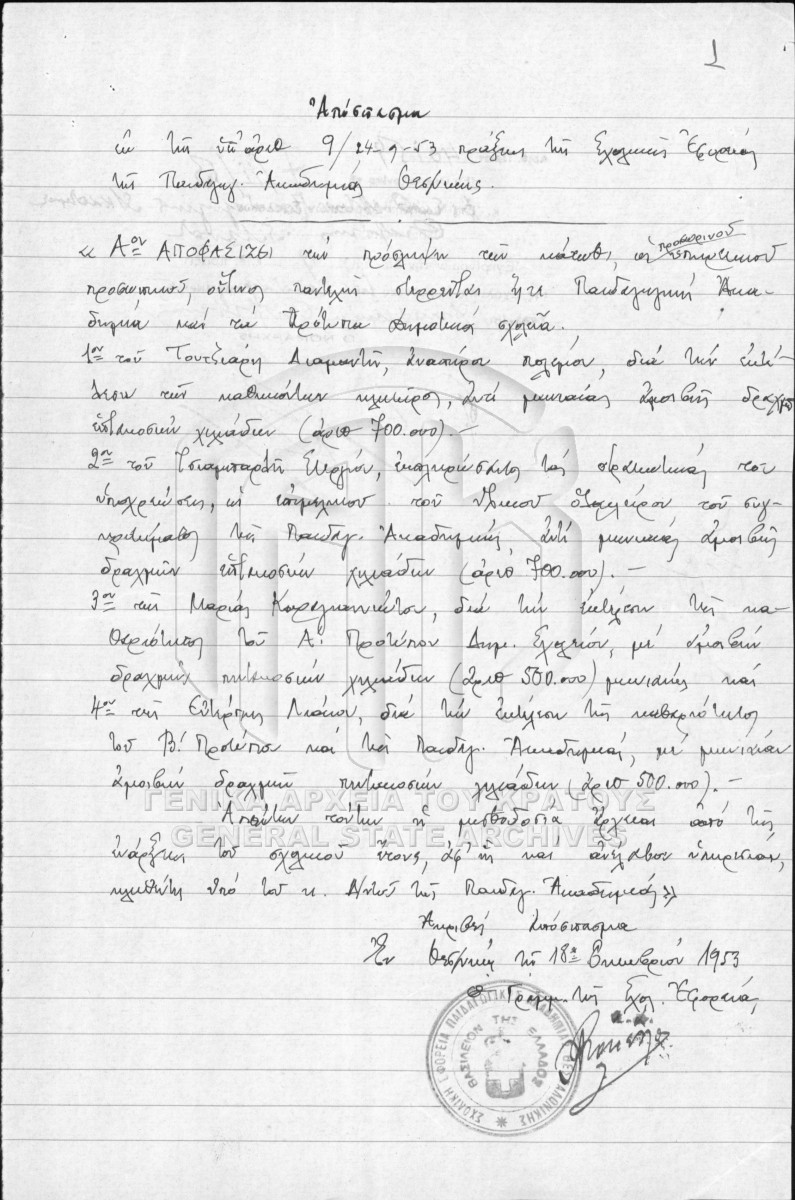 1
Ἀπόσπασμα
ἐκ τῆς ὑπ' ἀριθ 9/24-9-53 πράξεως τῆς Σχολικῆς Ἐφορείας
τῆς Παιδαγωγ. Ἀκαδημίας Θεσ/νίκης.
« Αον ΑΠΟΦΑΣΙΖΕΙ τὴν πρόσληψιν τῶν κάτωθι, ὡς προσωρινοῦ ὑπηρετικοῦ
προσωπικοῦ, οὗτινος παντελῆ στερρεῖται ἥ τε Παιδαγωγικὴ Ἀκα-
δημία καὶ τὰ Πρότυπα Δημοτικὰ σχολεῖα.
1ον τοῦ Τουτζιάρη Διαμαντῆ, ἀναπήρου πολέμου, διὰ τὴν ἐκτέ-
λεσιν τῶν καθηκόντων κλητῆρος, ἀντὶ μηνιαίας ἀμοιβῆς δραχμῶν
ἑπτακοσίων χιλιάδων (ἀριθ 700.000).—
2ον τοῦ Τσιαμπαρῆ Στεργίου, ἐκπληρώσαντος τὰς στρατιωτικάς του
ὑποχρεώσεις, ὡς ἐπιμελητοῦ τοῦ ὑλικοῦ ὁλοκλήρου τοῦ συγ-
κροτήματος τῆς Παιδαγ. Ἀκαδημίας, ἀντὶ μηνιαίας ἀμοιβῆς
δραχμῶν ἑπτακοσίων χιλιάδων (ἀριθ 700.000).—
3ον τῆς Μαρίας Καραγιαννώτου, διὰ τὴν ἐκτέλεσιν τῆς κα-
θαριότητος τοῦ Α' Προτύπου Δημ. Σχολείου, μὲ ἀμοιβὴν
δραχμῶν πεντακοσίων χιλιάδων (ἀριθ 500.000) μηνιαίως καὶ
4ον τῆς Εὐτέρπης Λιάκου, διὰ τὴν ἐκτέλεσιν τῆς καθαριότητος
τοῦ Β' Προτύπου καὶ τῆς Παιδαγ. Ἀκαδημίας, μὲ μηνιαίαν
ἀμοιβὴν δραχμῶν πεντακοσίων χιλιάδων (ἀριθ 500.000).—
Ἁπάντων τούτων ἡ μισθοδοσία ἄρχεται ἀπὸ τῆς
ἐνάρξεως τοῦ σχολικοῦ ἔτους, ἀφ' ἧς καὶ ἀνέλαβον ὑπηρεσίαν,
κληθέντες ὑπὸ τοῦ κ. Δ/ντοῦ τῆς Παιδαγ. Ἀκαδημίας»
Ἀκριβὲς ἀπόσπασμα
Ἐν Θεσ/νίκῃ τῇ 18ῃ Δεκεμβρίου 1953
Ὁ Γραμμ. τῆς Σχολ. Ἐφορείας
ΣΧΟΛΙΚΗ ΕΦΟΡΕΙΑ ΠΑΙΔΑΓΩΓΙΚΗΣ ΑΚΑΔΗΜΙΑΣ ΘΕΣΣΑΛΟΝΙΚΗΣ
ΒΑΣΙΛΕΙΟΝ ΤΗΣ ΕΛΛΑΔΟΣ
ΓΕΝΙΚΑ ΑΡΧΕΙΑ ΤΟΥ ΚΡΑΤΟΥΣ
GENERAL STATE ARCHIVES